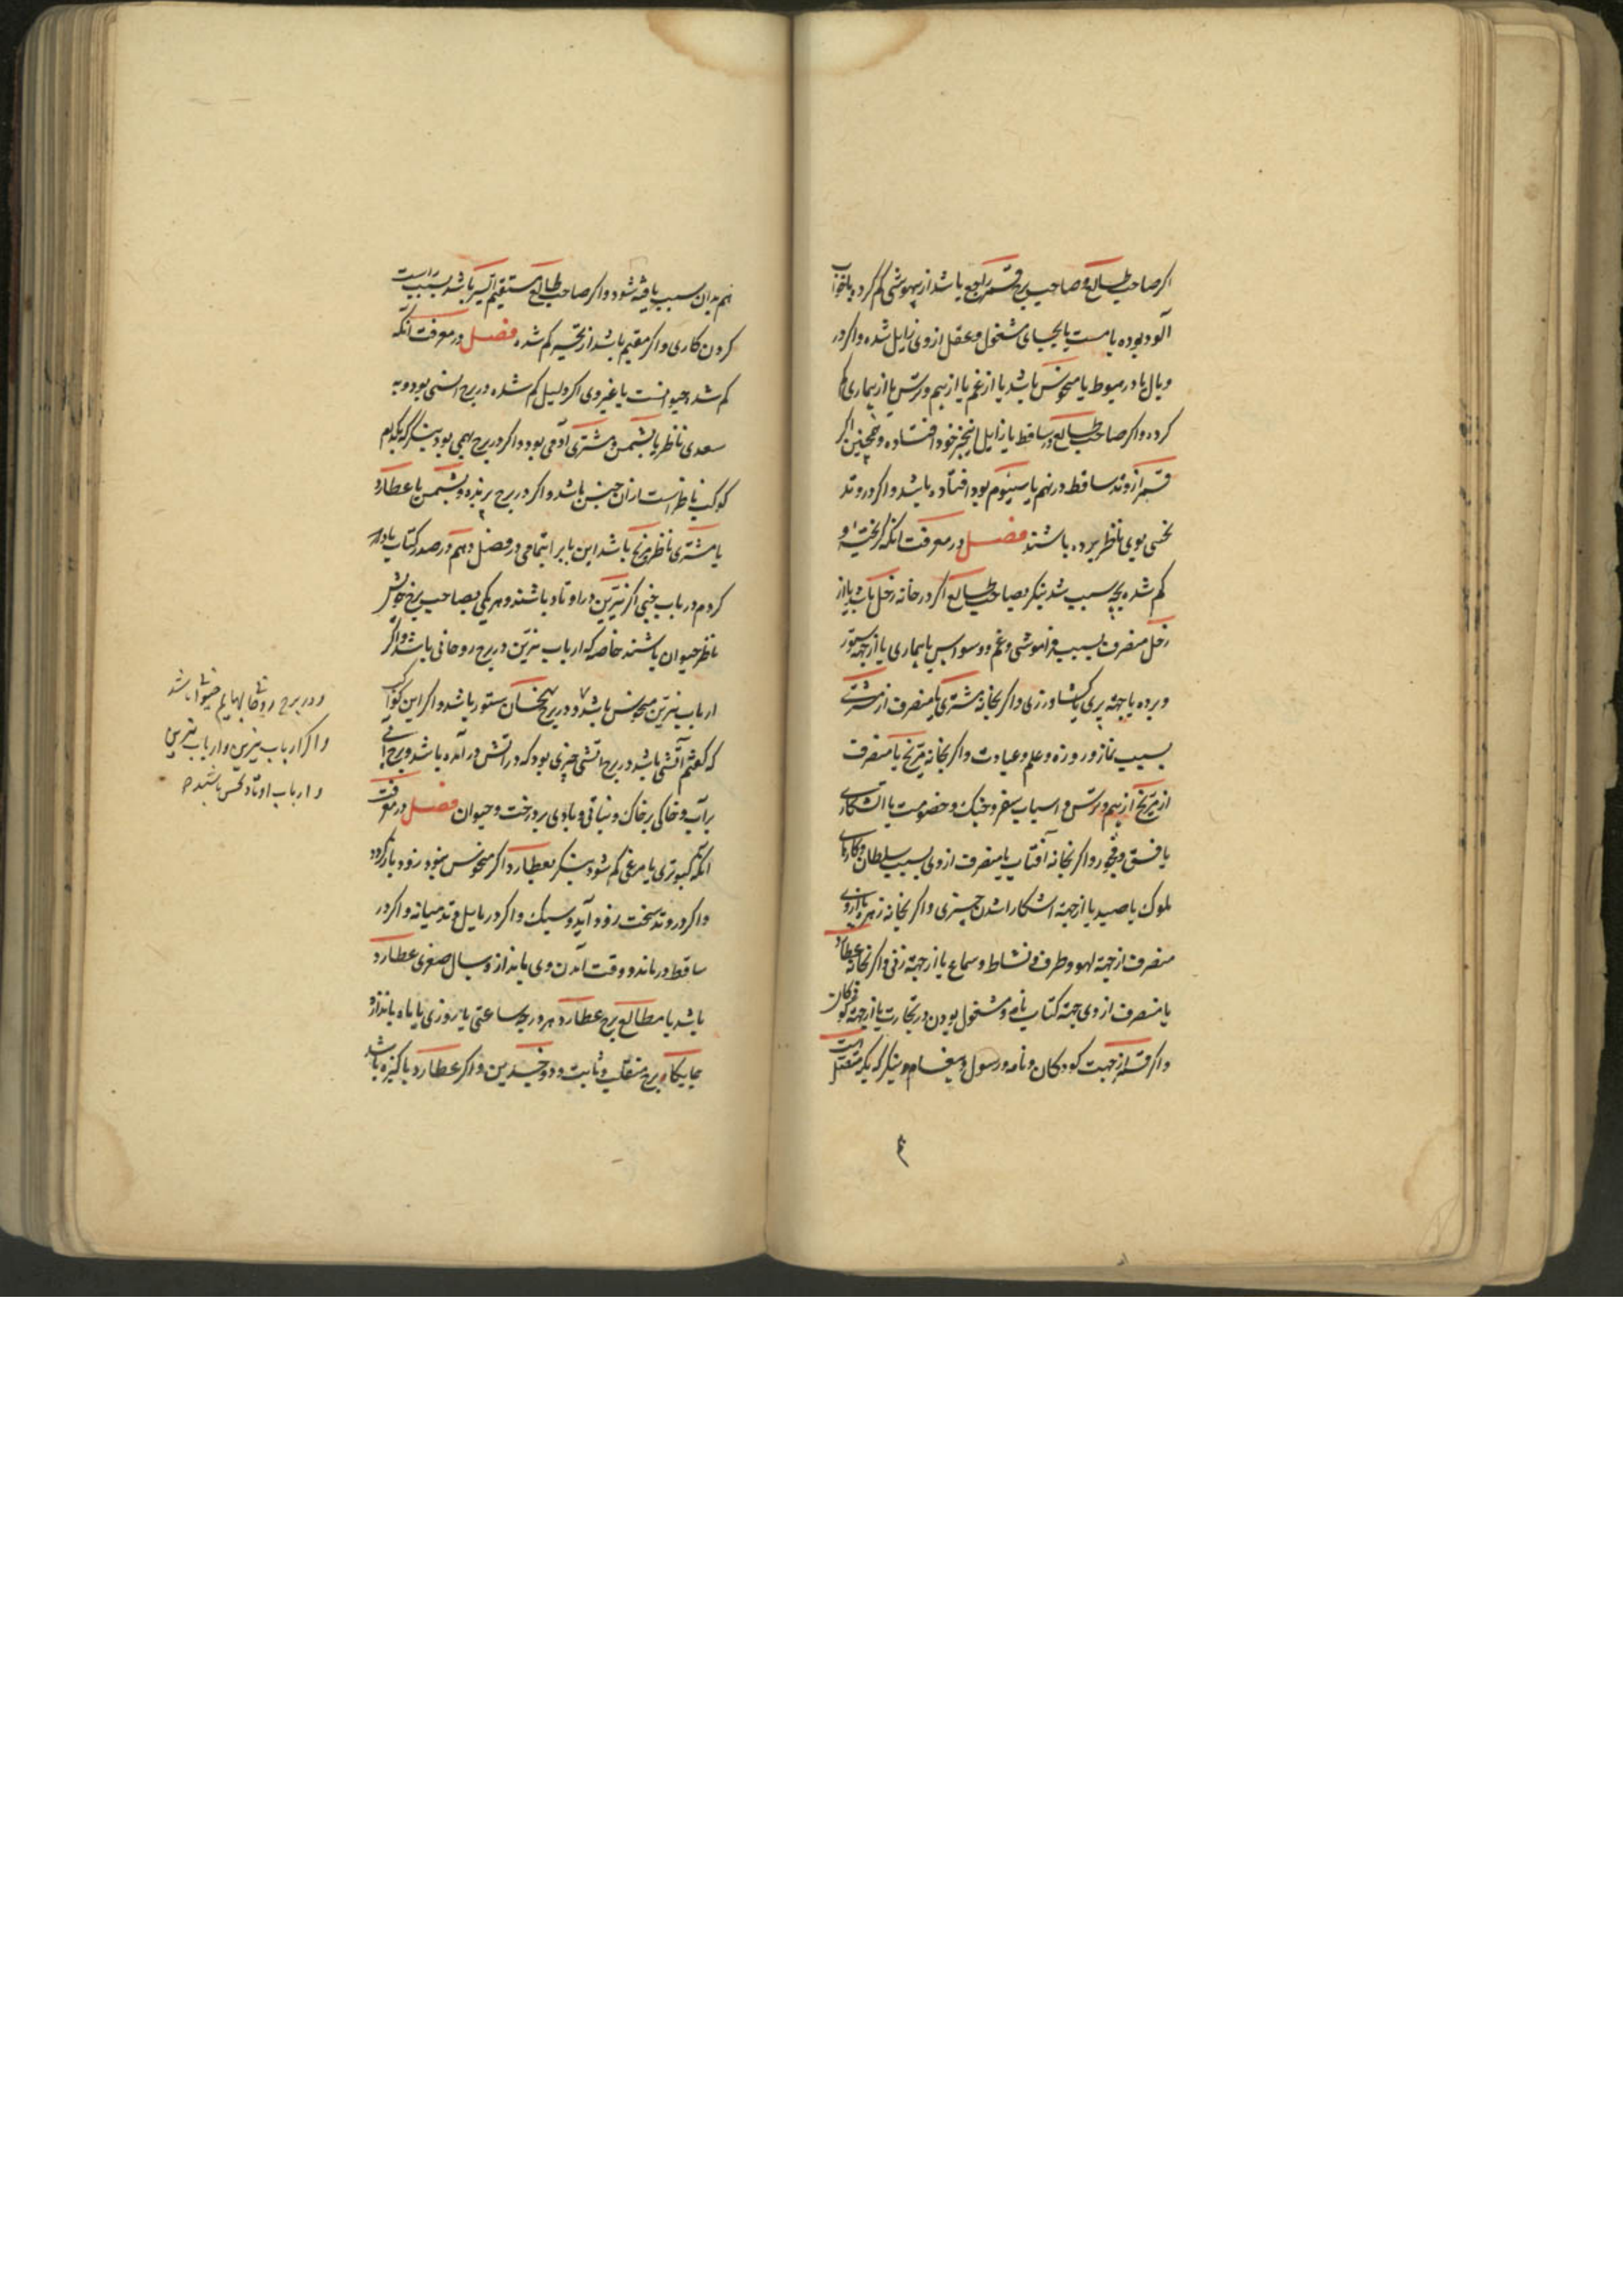 اگر صاحب طالع و صاحب برج قمر راجع باشد از بیهوشی گم کرده یا خواب
آلود بوده یا مست یا بجیای مشغول و عقل ازوی زایل شده و اگر در
وبال یا در هبوط یا منحوس باشد یا از غم یا از بیم و ترس یا از بیماری گم
کرده و اگر صاحب طالع در ساقط یا زایل از بنجر خود افتاده و همچنین اگر
قمر از وتد ساقط در نهم یا سیوم بود افتاده باشد و اگر در وتد
نحسی بوی ناظر برده باشند فصل در معرفت آنکه گریخته و
گم شده بچه سبب شد بنگر بصاحب طالع اگر در خانه زحل باشد یا از
زحل منصرف بسبب فراموشی و غم و وسواس یا بیماری یا از جهة ستور
و برده یا جهة پری یا کشاورزی و اگر بخانه مشتری یا منصرف از مشتری
بسبب نماز و روزه و علم و عبادت و اگر بخانه مریخ یا منصرف
از مریخ از بیم و ترس و اسباب سفر و جنک و خصومت یا اتشکاری
یا فسق و فجور و اگر بخانه آفتاب یا منصرف ازوی بسبب سلطان و کارهای
ملوک یا صید یا از جهة اشکارا شدن چیزی و اگر بخانه زهره یا ازوی
منصرف از جهة لهو و طرف و نشاط و سماع یا از جهة زنی و اگر بخانه عطارد
یا منصرف ازوی جهة کتاب نامه و مشغول بودن در تجارت یا از جهة کودکان
و اگر قمر از جهت کودکان و نامه و رسول و پیغام و بنگر که بکه متصل است
هم بدان سبب یافته شود و اگر صاحب طالع مستقیم السیر باشد بسبب راست
کردن کاری و اگر مقیم باشد از تحیر گم شده فصل در معرفت آنکه
گم شده حیوانست یا غیر وی اگر دلیل گم شده در برج انسی بود و به
سعدی ناظر یا بشمس و مشتری آدمی بود و اگر در برج بهیمی بود بنگر که بکدام
کوکب ناظر است ازان جنس باشد و اگر در برج پرنده و بشمس یا عطارد
یا مشتری ناظر و مریخ باشد این باب را بتمامی در فصل دهم در صدر کتاب یاد
کردم در باب خبی اگر نیرین در اوتاد باشند و هر یکی بصاحب برج خویش
ناظر حیوان باشند خاصه که ارباب نیرین در برج روحانی باشد و اگر
ارباب نیرین منحوس باشد و در برج سخسان ستور باشد و اگر این کواکب
که گفتم آتشی باشد در برج اتشی چیزی بود که در اتش در آمده باشد و برج آبی
بر آب و خاکی بر خاک و نباتی و بادی بر درخت و حیوان فصل در معرفت
آنکه کبوتری یا مرغی گم شود بنگر بعطارد اگر منحوس نبود زود باز گردد
و اگر در وتد سخت زود آید و سبک و اگر در مایل وتد میانه و اگر در
ساقط درماند و وقت آمدن وی یا باندازه سال صغری عطارد
باشد یا مطالع برج عطارد هر درجه ساعتی یا روزی یا ماه باندازه
جایگاه برج منقلب و ثابت و ذوجسدین و اگر عطارد پاکیزه باشد
و در برج روحا بهایم حیوا باشد
و اگر ارباب نیرین و ارباب نیرین
و ارباب اوتاد نحس باشند